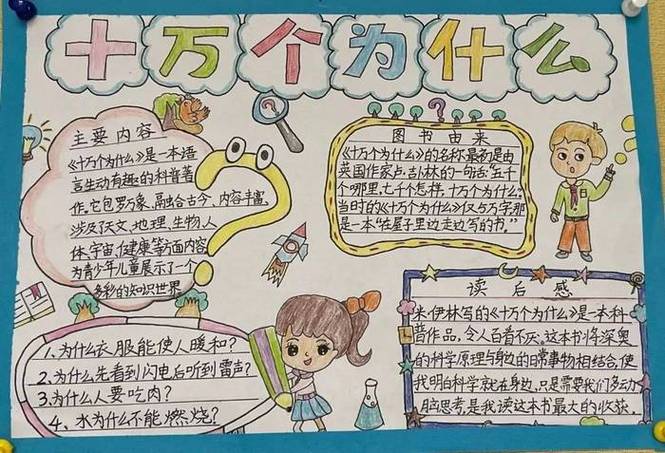 十万个为什么
主要内容
《十万个为什么》是一本语
言生动有趣的科普著
作。它包罗万象、融合古今、内容丰富,
涉及了天文、地理、生物、人
体、宇宙、健康等方面内容,
为青少年儿童展示了一个
多彩的知识世界
图书由来
《十万个为什么》的名称最初是由
英国作家卢·吉卜林的一句话:"五千
个哪里,七千个怎样,十万个为什么。"
当时的《十万个为什么》仅5万字,那
是一本"在屋子里边走边写的书。"
1、为什么衣服能使人暖和?
2、为什么先看到闪电后听到雷声?
3、为什么人要吃肉?
4、水为什么不能燃烧?
读后感
米·伊林写的《十万个为什么》是一本科
普作品,令人百看不厌。这本书将深奥
的科学原理与身边的日常事物相结合,使
我明白科学就在身边,只是需要我们多动
脑思考,是我读这本书最大的收获。